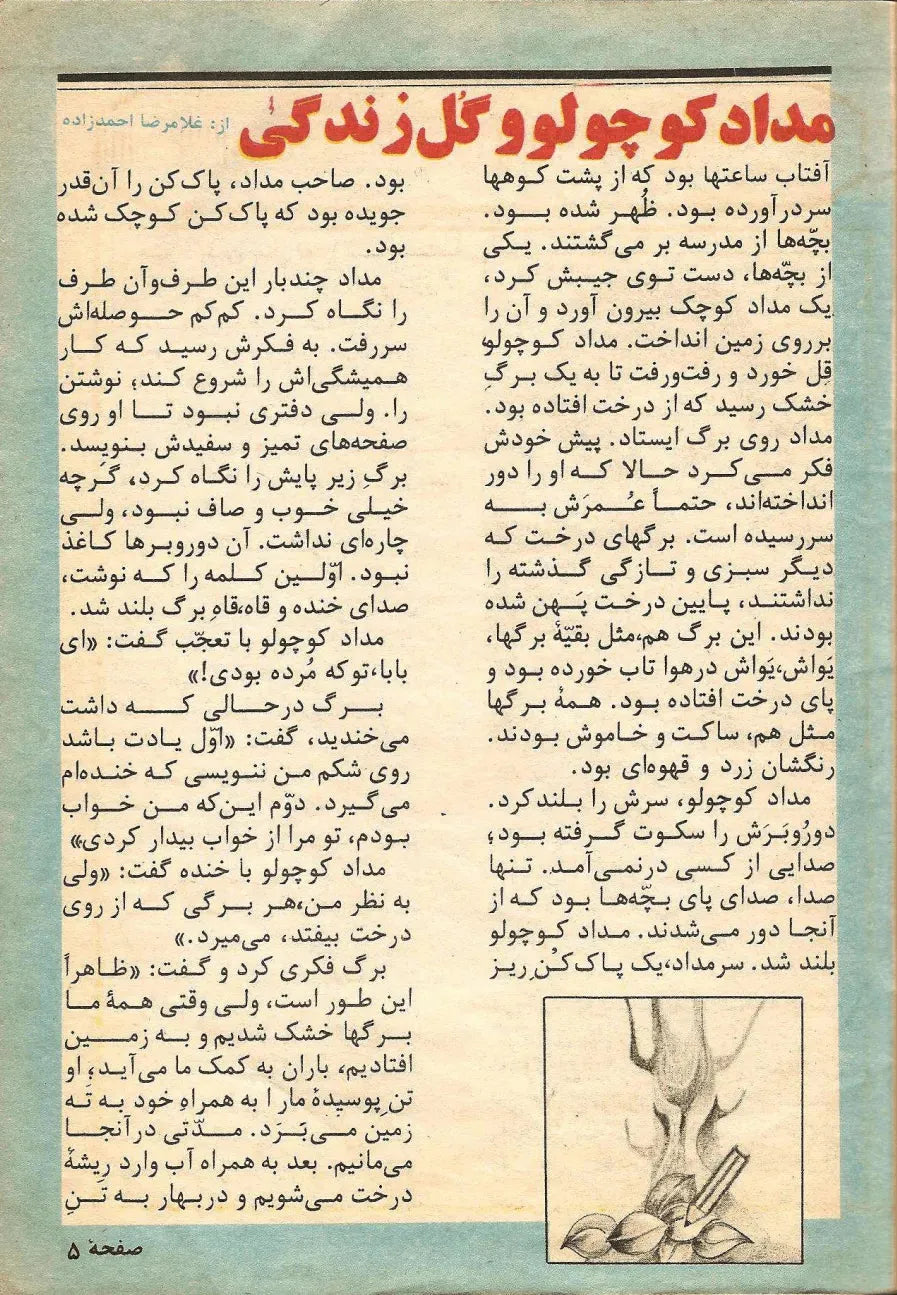 مداد کوچولو و گُل زندگی
از: غلامرضا احمدزاده
آفتاب ساعتها بود که از پشت کوهها
سردرآورده بود. ظُهر شده بود.
بچّه‌ها از مدرسه بر می‌گشتند. یکی
از بچّه‌ها، دست توی جیبش کرد،
یک مداد کوچک بیرون آورد و آن را
برروی زمین انداخت. مداد کوچولو،
قِل خورد و رفت‌ورفت تا به یک برگِ
خشک رسید که از درخت افتاده بود.
مداد روی برگ ایستاد. پیش خودش
فکر می‌کرد حالا که او را دور
انداخته‌اند، حتماً عُمرَش به
سررسیده است. برگهای درخت که
دیگر سبزی و تازگی گذشته را
نداشتند، پایین درخت پَهن شده
بودند. این برگ هم،مثل بقیّهٔ برگها،
یَواش،یَواش درهوا تاب خورده بود و
پای درخت افتاده بود. همهٔ برگها
مثل هم، ساکت و خاموش بودند.
رنگشان زرد و قهوه‌ای بود.
مداد کوچولو، سرش را بلندکرد.
دورُوبَرَش را سکوت گرفته بود؛
صدایی از کسی درنمی‌آمد. تنها
صدا، صدای پای بچّه‌ها بود که از
آنجا دور می‌شدند. مداد کوچولو
بلند شد. سرمداد،یک پاک‌کُنِ ریز
بود. صاحب مداد، پاک‌کن را آن‌قدر
جویده بود که پاک‌کن کوچک شده
بود.
مداد چندبار این طرف‌وآن طرف
را نگاه کرد. کم‌کم حوصله‌اش
سررفت. به فکرش رسید که کار
همیشگی‌اش را شروع کند؛ نوشتن
را. ولی دفتری نبود تا او روی
صفحه‌های تمیز و سفیدش بنویسد.
برگِ زیر پایش را نگاه کرد، گرچه
خیلی خوب و صاف نبود، ولی
چاره‌ای نداشت. آن دوروبرها کاغذ
نبود. اوّلین کلمه را که نوشت،
صدای خنده و قاه،قاهِ برگ بلند شد.
مداد کوچولو با تعجّب گفت: «ای
بابا،توکه مُرده بودی!»
برگ درحالی که داشت
می‌خندید، گفت: «اوّل یادت باشد
روی شکم من ننویسی که خنده‌ام
می‌گیرد. دوّم این‌که من خواب
بودم، تو مرا از خواب بیدار کردی.»
مداد کوچولو با خنده گفت: «ولی
به نظر من،هر برگی که از روی
درخت بیفتد، می‌میرد.»
برگ فکری کرد و گفت: «ظاهراً
این طور است، ولی وقتی همهٔ ما
برگها خشک شدیم و به زمین
افتادیم، باران به کمک ما می‌آید؛ او
تنِ پوسیدهٔ مارا به همراهِ خود به تَه
زمین می‌بَرَد. مدّتی درآنجا
می‌مانیم. بعد به همراه آب وارد ریشهٔ
درخت می‌شویم و دربهار به تَنِ
صفحهٔ ۵